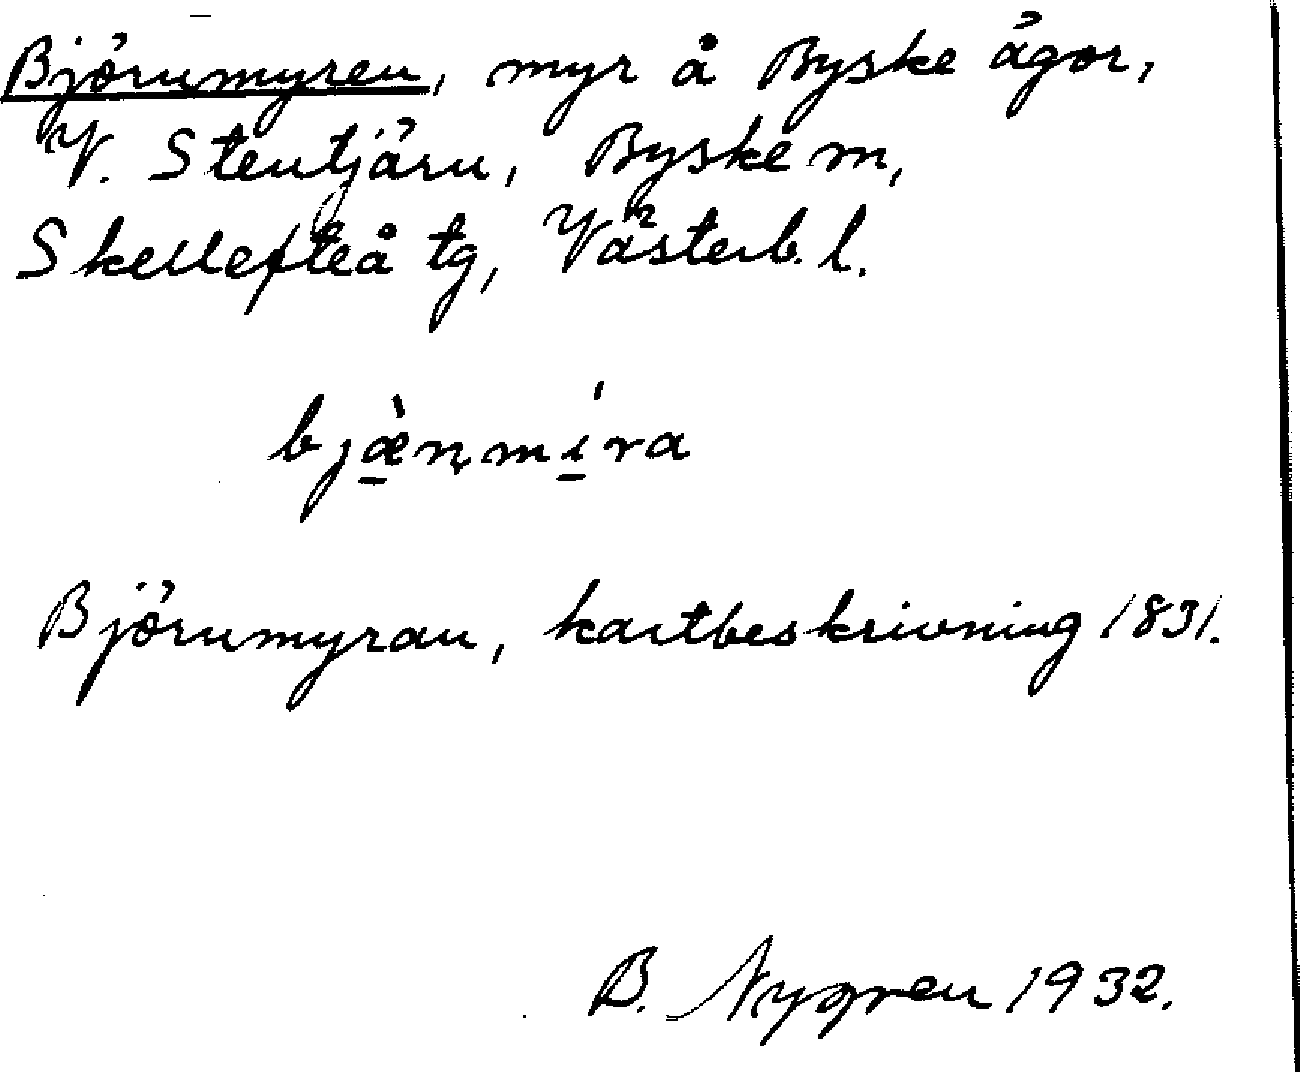 Björnmyren, myr å Byske ägor,
V. Stentjärn, Byske m,
Skellefteå tg, Västerb. l.
bjæ̠̀ṇmí̠ra
Björnmyran, kartbeskrivning 1831.
B. Nygren 1932.